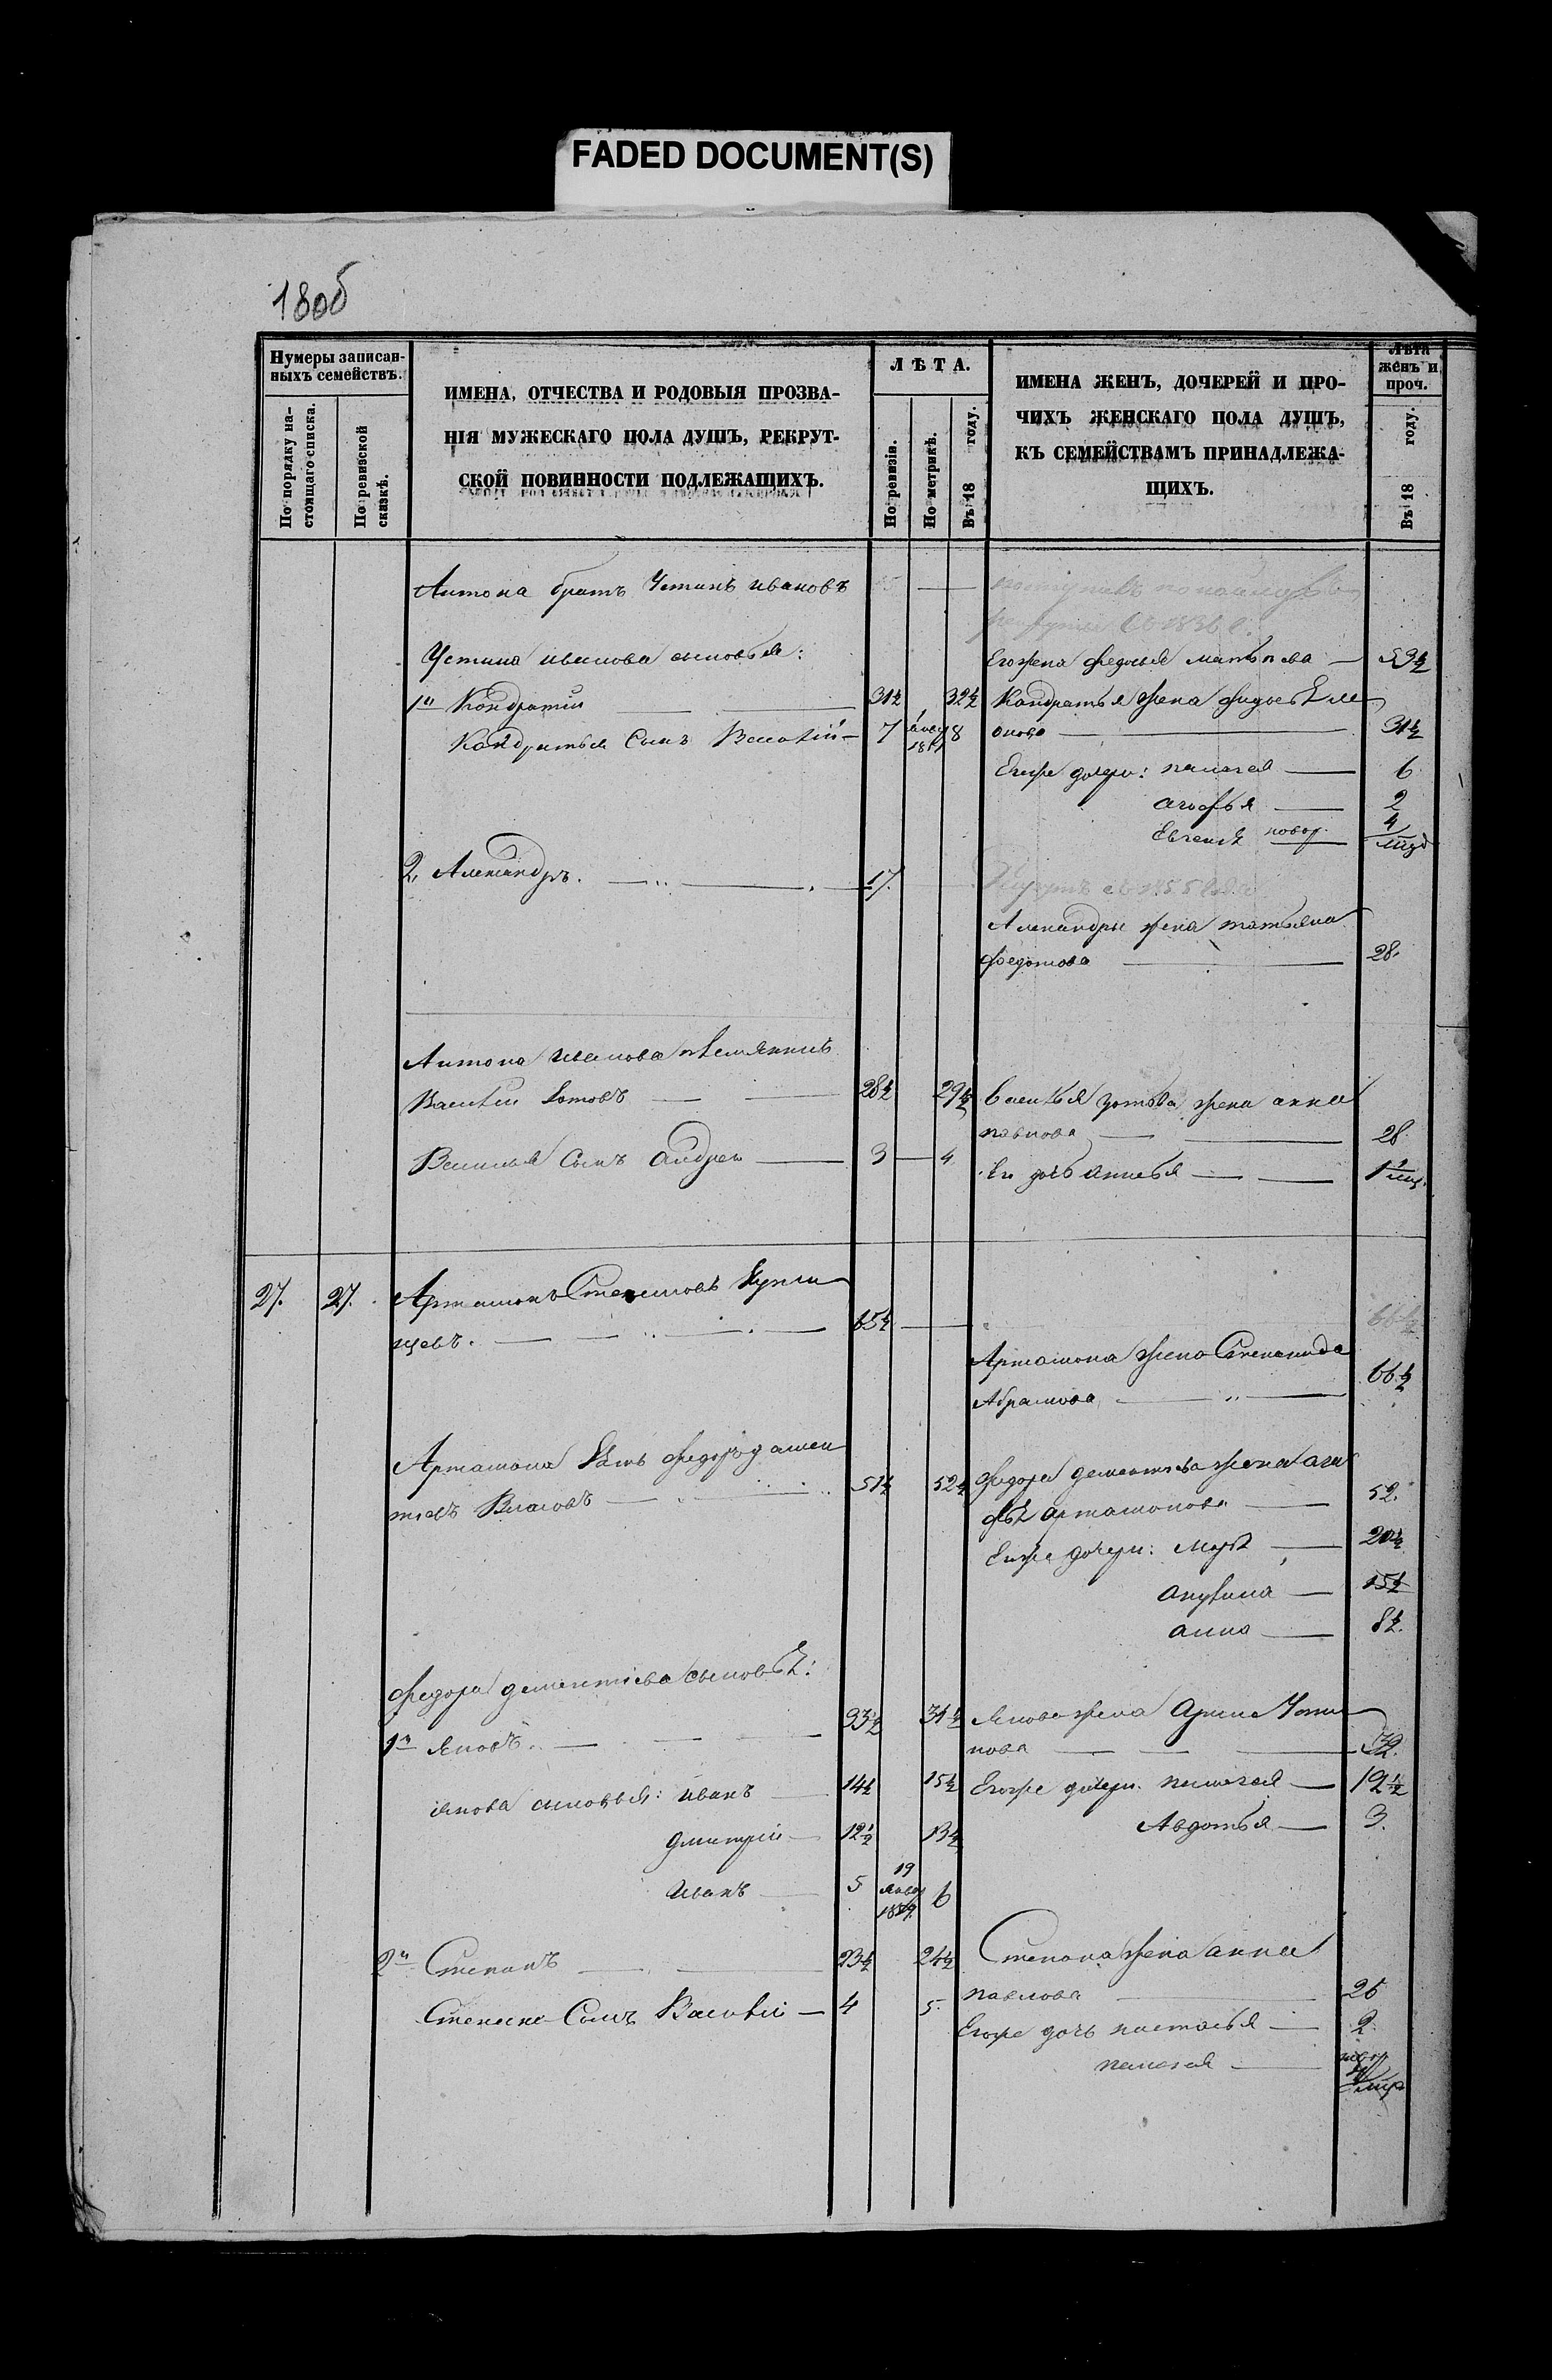 FADED DOCUMENT(S)
180об
Нумеры записан-
ныхъ семействъ.
По порядку на-
стоящаго списка.
По ревизской
сказкѣ.
ИМЕНА, ОТЧЕСТВА И РОДОВЫЯ ПРОЗВА-
НІЯ МУЖЕСКАГО ПОЛА ДУШЪ, РЕКРУТ-
СКОЙ ПОВИННОСТИ ПОДЛЕЖАЩИХЪ.
ЛѢТА.
По ревизіи.
По метрикѣ.
Въ 18 году.
ИМЕНА ЖЕНЪ, ДОЧЕРЕЙ И ПРО-
ЧИХЪ ЖЕНСКАГО ПОЛА ДУШЪ,
КЪ СЕМЕЙСТВАМЪ ПРИНАДЛЕЖА-
ЩИХЪ.
Лѣта
женъ и
проч.
Въ 18 году.
Антона братъ Устинъ ивановъ
Устина иванова сыновья:
Его жена федосья 53½
1й Кондратій 31½ 32½ Кондратья жена
Кондратья Сынъ Василій 7 8 31½
Егоже дочери: пелагея 6
агафья 2
Евгенія новор. 4
2, Александръ. 17.
Александры жена татьяна
федотова 28.
Антона иванова племянникъ
Василій Зотовъ 28½ 29½ василья зотова жена анна
павлова 28
Василья Сынъ андрей 3 4
Ея дочь 1
27. 27. Артамонъ Степановъ
65½ 66½
Артамона жена Степанида
Абрамова 66½
Артамона Зять федоръ демен
тіевъ Власовъ 51½ 52½ федора дементіева жена ага
фья артамонова 52.
Егоже дочери: 20½
акулина 15½
анна 8½.
федора дементіева сыновья:
1й яковъ. 33½ 34½ якова жена арина Усти
нова 32.
якова сыновья: иванъ 14½ 15½ Егоже дочери. пелагея 12½
дмитрій 12½ 13½ Авдотья 3.
иванъ 5 19 6
2й Степанъ 23½ 24½ Степана жена анна
павлова 25
Степана Сынъ Василій 4 5.
Егоже дочь настасья 2.
пелагея